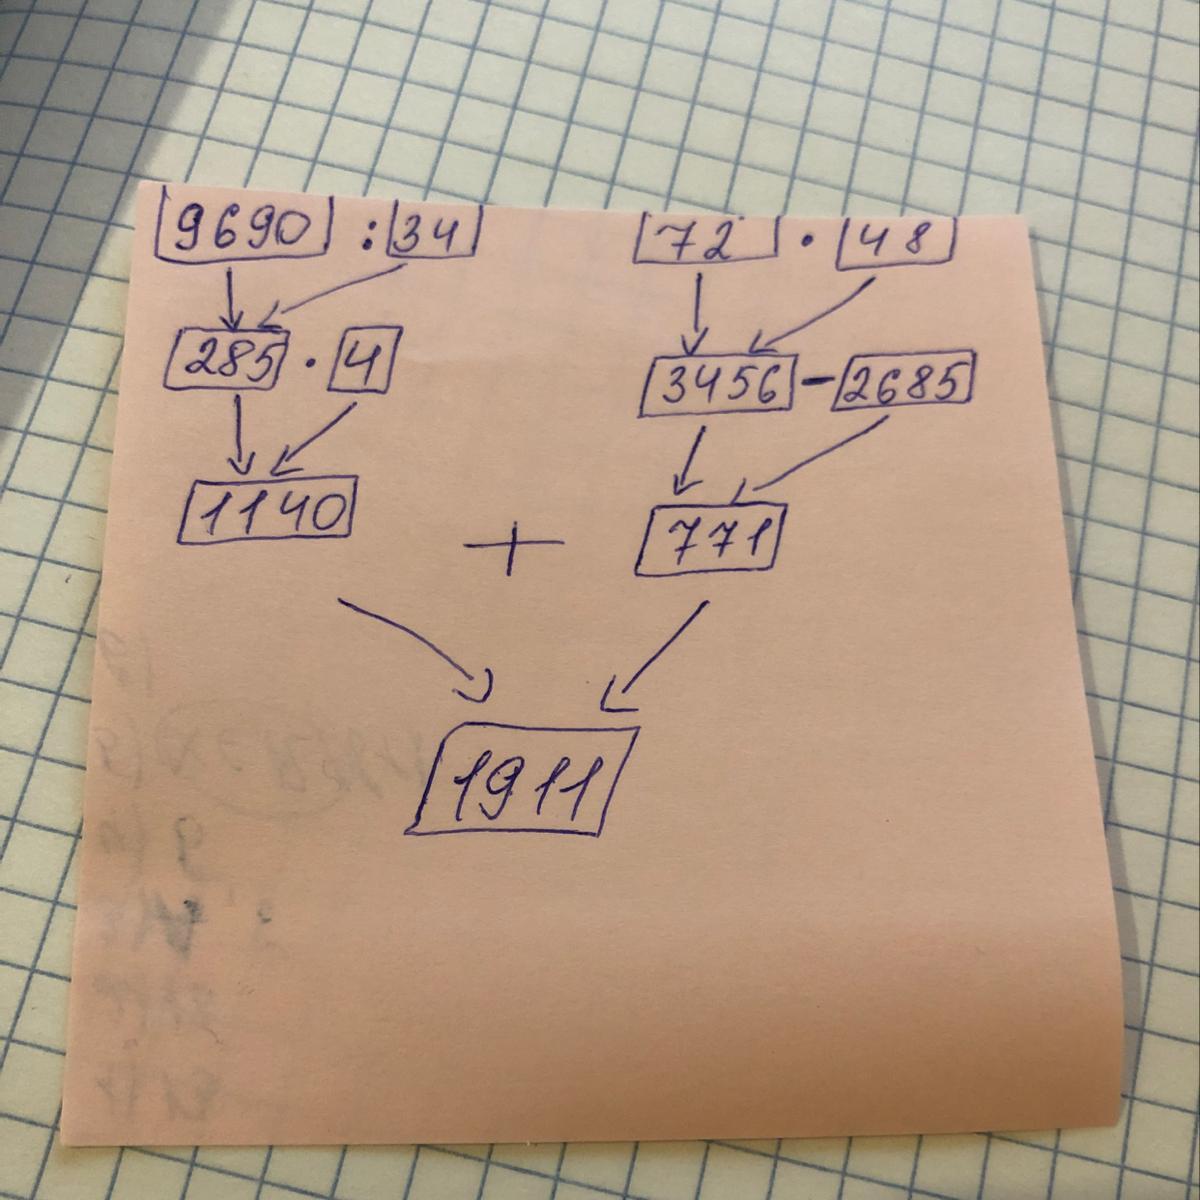 9690 : 34 72 · 48
285 · 4 3456 - 2685
1140 + 771
1911